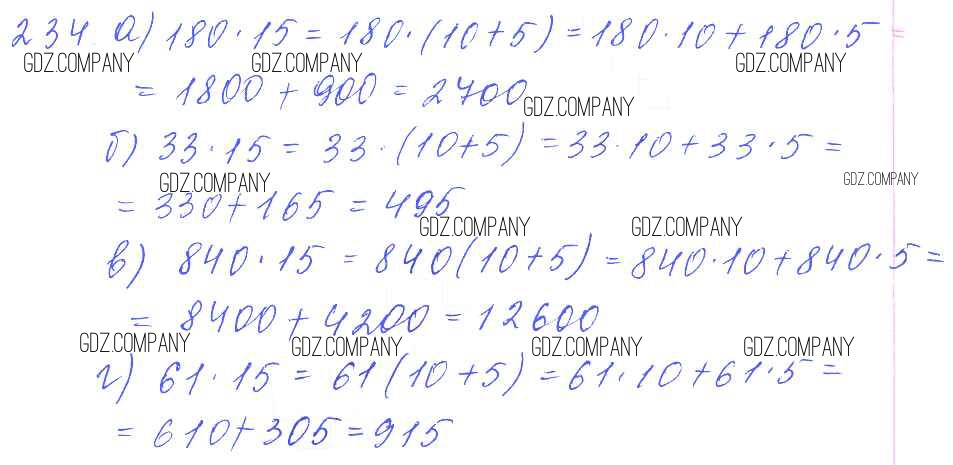 234 а) 180·15 = 180·(10+5) = 180·10+180·5 =
GDZ.COMPANY GDZ.COMPANY GDZ.COMPANY
= 1800 + 900 = 2700
GDZ.COMPANY
б) 33·15 = 33·(10+5) = 33·10+33·5 =
GDZ.COMPANY GDZ.COMPANY
= 330+165 = 495
GDZ.COMPANY GDZ.COMPANY
в) 840·15 = 840(10+5) = 840·10+840·5 =
= 8400 + 4200 = 12600
GDZ.COMPANY GDZ.COMPANY GDZ.COMPANY GDZ.COMPANY
г) 61·15 = 61(10+5) = 61·10+61·5 =
= 610+305 = 915